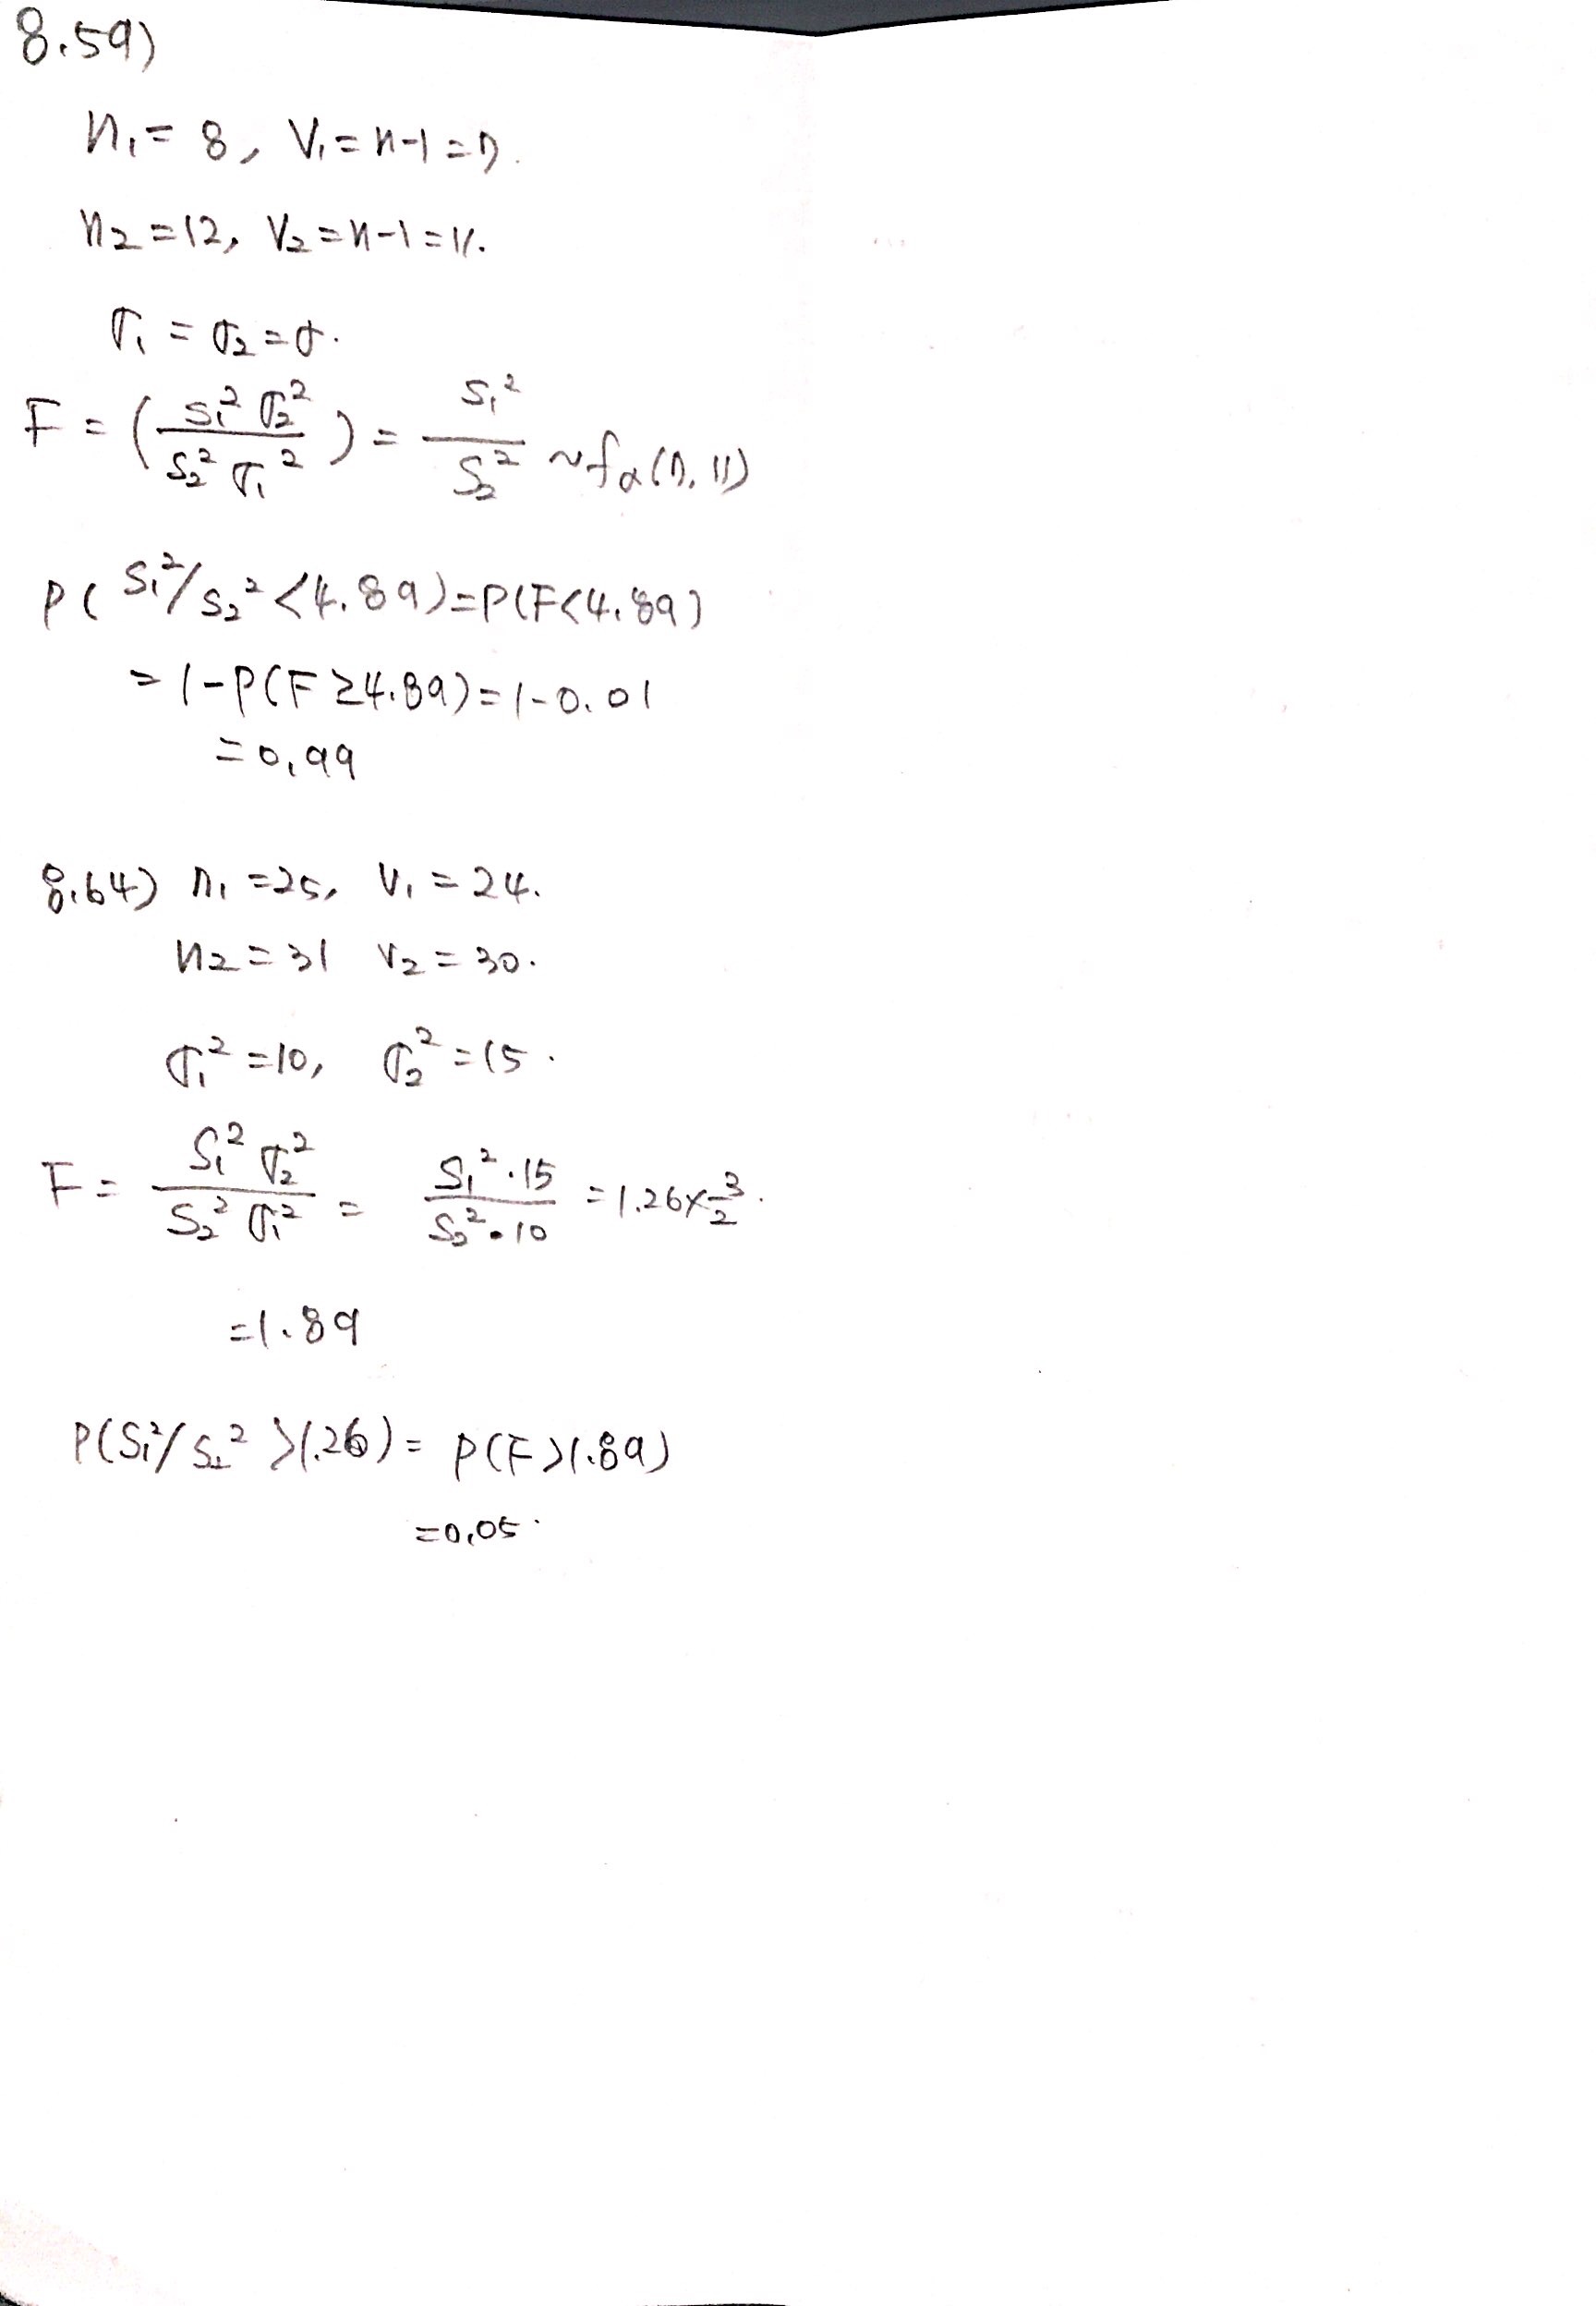 8.59)
n₁ = 8, V₁ = n-1 = 7.
n₂ = 12, V₂ = n-1 = 11.
σ₁ = σ₂ = σ.
F = (S₁² σ₂² / S₂² σ₁²) = S₁² / S₂² ~ fα(7, 11)
P( S₁²/S₂² < 4.89) = P(F < 4.89)
= 1 - P(F ≥ 4.89) = 1 - 0.01
= 0.99
8.64) n₁ = 25, V₁ = 24.
n₂ = 31 V₂ = 30.
σ₁² = 10, σ₂² = 15.
F = S₁² σ₂² / S₂² σ₁² = S₁² · 15 / S₂² · 10 = 1.26 × 3/2.
= 1.89
P(S₁²/S₂² > 1.26) = P(F > 1.89)
= 0.05.